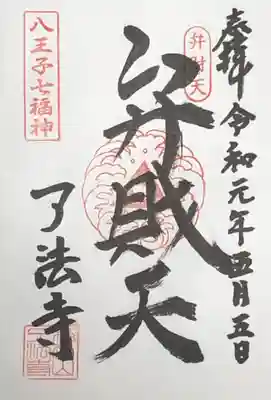 奉拝 令和元年五月五日
弁財天
弁財天
八王子七福神
了法寺